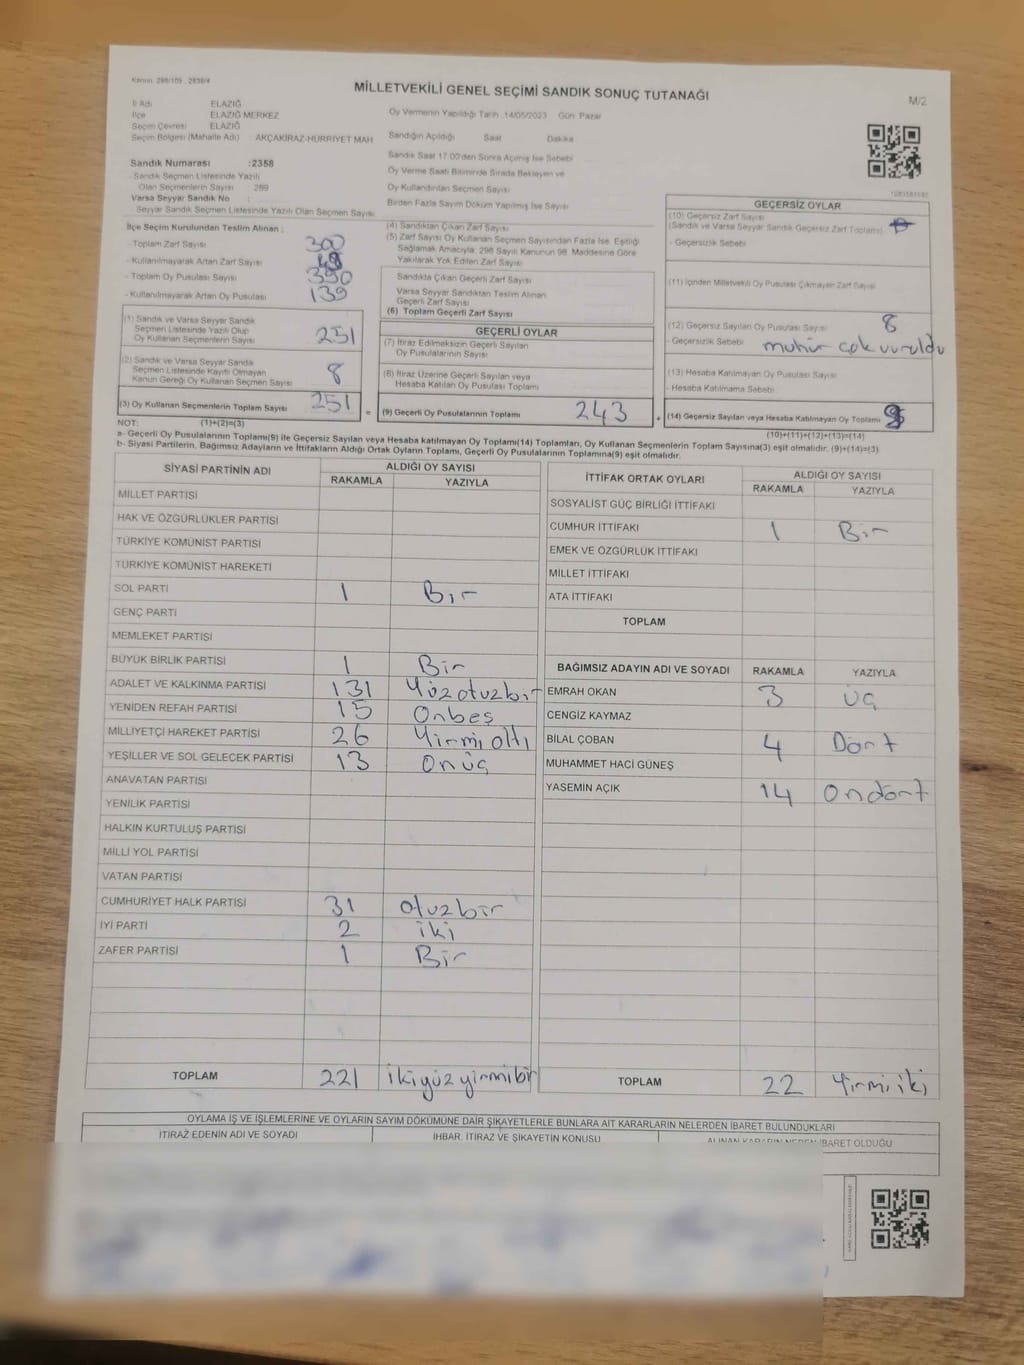 Kanun: 298/105 2839/4
MİLLETVEKİLİ GENEL SEÇİMİ SANDIK SONUÇ TUTANAĞI
M/2
İl Adı ELAZIĞ
İlçe ELAZIĞ MERKEZ
Seçim Çevresi ELAZIĞ
Seçim Bölgesi (Mahalle Adı) : AKÇAKİRAZ-HÜRRİYET MAH
Sandık Numarası :2358
- Sandık Seçmen Listesinde Yazılı
Olan Seçmenlerin Sayısı 289
Varsa Seyyar Sandık No :
Seyyar Sandık Seçmen Listesinde Yazılı Olan Seçmen Sayısı
Oy Vermenin Yapıldığı Tarih :14/05/2023 Gün: Pazar
Sandığın Açıldığı Saat Dakika
Sandık Saat 17:00'den Sonra Açılmış İse Sebebi
Oy Verme Saati Bitiminde Sırada Bekleyen ve
Oy Kullandırılan Seçmen Sayısı
Birden Fazla Sayım Döküm Yapılmış İse Sayısı
İlçe Seçim Kurulundan Teslim Alınan :
- Toplam Zarf Sayısı 300
- Kullanılmayarak Artan Zarf Sayısı
- Toplam Oy Pusulası Sayısı 390
- Kullanılmayarak Artan Oy Pusulası 139
(1) Sandık ve Varsa Seyyar Sandık
Seçmen Listesinde Yazılı Olup
Oy Kullanan Seçmenlerin Sayısı 251
(2) Sandık ve Varsa Seyyar Sandık
Seçmen Listesinde Kayıtlı Olmayan
Kanun Gereği Oy Kullanan Seçmen Sayısı 8
(3) Oy Kullanan Seçmenlerin Toplam Sayısı 251
(4) Sandıktan Çıkan Zarf Sayısı
(5) Zarf Sayısı Oy Kullanan Seçmen Sayısından Fazla İse, Eşitliği
Sağlamak Amacıyla, 298 Sayılı Kanunun 98. Maddesine Göre
Yakılarak Yok Edilen Zarf Sayısı
Sandıkta Çıkan Geçerli Zarf Sayısı
Varsa Seyyar Sandıktan Teslim Alınan
Geçerli Zarf Sayısı
(6) Toplam Geçerli Zarf Sayısı
GEÇERLİ OYLAR
(7) İtiraz Edilmeksizin Geçerli Sayılan
Oy Pusulalarının Sayısı
(8) İtiraz Üzerine Geçerli Sayılan veya
Hesaba Katılan Oy Pusulası Toplamı
= (9) Geçerli Oy Pusulalarının Toplamı 243
GEÇERSİZ OYLAR
(10) Geçersiz Zarf Sayısı
(Sandık ve Varsa Seyyar Sandık Geçersiz Zarf Toplamı)
- Geçersizlik Sebebi
(11) İçinden Milletvekili Oy Pusulası Çıkmayan Zarf Sayısı
(12) Geçersiz Sayılan Oy Pusulası Sayısı 8
- Geçersizlik Sebebi muhür çok vuruldu
(13) Hesaba Katılmayan Oy Pusulası Sayısı
- Hesaba Katılmama Sebebi
+ (14) Geçersiz Sayılan veya Hesaba Katılmayan Oy Toplamı 8
NOT: (1)+(2)=(3)
(10)+(11)+(12)+(13)=(14)
a- Geçerli Oy Pusulalarının Toplamı(9) ile Geçersiz Sayılan veya Hesaba katılmayan Oy Toplamı(14) Toplamları, Oy Kullanan Seçmenlerin Toplam Sayısına(3) eşit olmalıdır. (9)+(14)=(3)
b- Siyasi Partilerin, Bağımsız Adayların ve İttifakların Aldığı Ortak Oyların Toplamı, Geçerli Oy Pusulalarının Toplamına(9) eşit olmalıdır.
SİYASİ PARTİNİN ADI ALDIĞI OY SAYISI
RAKAMLA YAZIYLA
MİLLET PARTİSİ
HAK VE ÖZGÜRLÜKLER PARTİSİ
TÜRKİYE KOMÜNİST PARTİSİ
TÜRKİYE KOMÜNİST HAREKETİ
SOL PARTİ 1 Bir
GENÇ PARTİ
MEMLEKET PARTİSİ
BÜYÜK BİRLİK PARTİSİ 1 Bir
ADALET VE KALKINMA PARTİSİ 131 Yüzotuzbir
YENİDEN REFAH PARTİSİ 15 Onbeş
MİLLİYETÇİ HAREKET PARTİSİ 26 Yirmi altı
YEŞİLLER VE SOL GELECEK PARTİSİ 13 Onüç
ANAVATAN PARTİSİ
YENİLİK PARTİSİ
HALKIN KURTULUŞ PARTİSİ
MİLLİ YOL PARTİSİ
VATAN PARTİSİ
CUMHURİYET HALK PARTİSİ 31 otuzbir
İYİ PARTİ 2 iki
ZAFER PARTİSİ 1 Bir
TOPLAM 221 ikiyüzyirmibir
İTTİFAK ORTAK OYLARI ALDIĞI OY SAYISI
RAKAMLA YAZIYLA
SOSYALİST GÜÇ BİRLİĞİ İTTİFAKI
CUMHUR İTTİFAKI 1 Bir
EMEK VE ÖZGÜRLÜK İTTİFAKI
MİLLET İTTİFAKI
ATA İTTİFAKI
TOPLAM
BAĞIMSIZ ADAYIN ADI VE SOYADI RAKAMLA YAZIYLA
EMRAH OKAN 3 üç
CENGİZ KAYMAZ
BİLAL ÇOBAN 4 Dört
MUHAMMET HACİ GÜNEŞ
YASEMİN AÇIK 14 Ondört
TOPLAM 22 Yirmi iki
OYLAMA İŞ VE İŞLEMLERİNE VE OYLARIN SAYIM DÖKÜMÜNE DAİR ŞİKAYETLERLE BUNLARA AİT KARARLARIN NELERDEN İBARET BULUNDUKLARI
İTİRAZ EDENİN ADI VE SOYADI İHBAR, İTİRAZ VE ŞİKAYETİN KONUSU ALINAN KARARIN NEDEN İBARET OLDUĞU